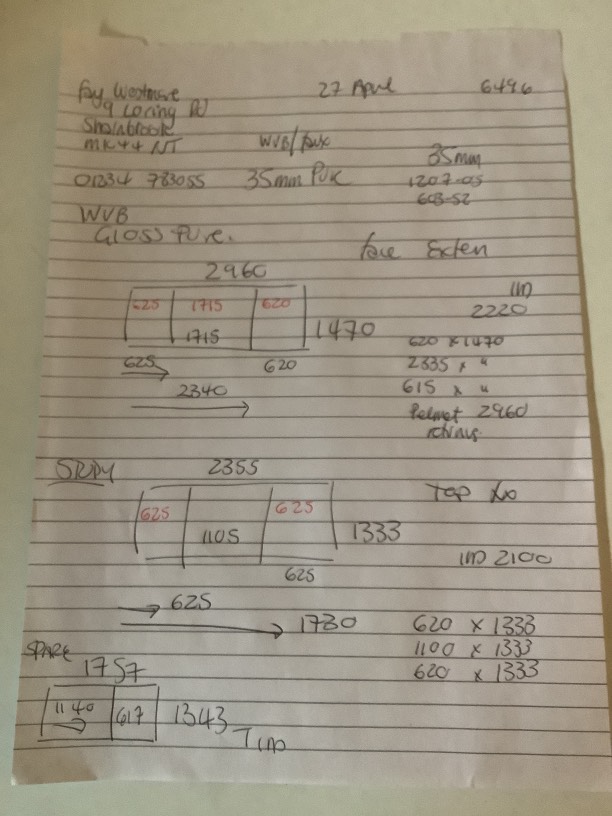 Fay Westmore 27 April 6496
9 Loring Rd
Sharnbrook
MK44 WVB/faux
01234 783055 35mm PVC 35mm
1207-05
603-52
WVB
Gloss Pure. face Exten
2960
625 1715 620
1715
1470
625 620
2340
2220
620 x 1470
2335 x "
615 x "
Pelmet 2960
returns
STUDY
2355
625 625
1105
1333
625
625
1730
Top No
2100
620 x 1333
1100 x 1333
620 x 1333
SPARE
1757
1140 617 1343